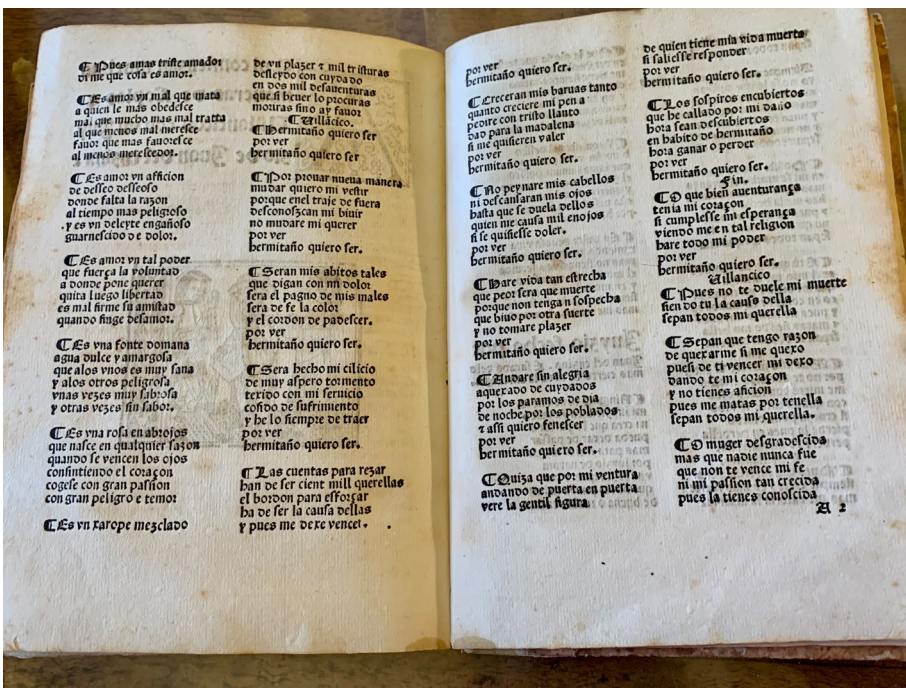 ¶ Pues amas triste amador
di me que cosa es amor.
¶ Es amor vn mal que mata
a quien le mas obedesce
mal que mucho mas mal tratta
al que menos mal meresce
fauor que mas fauoresce
al menos merescedor.
¶ Es amor vn afficion
de desseo desseoso
donde falta la razon
al tiempo mas peligroso
y es vn deleyte engañoso
guarnescido de dolor.
¶ Es amor vn tal poder
que fuerça la voluntad
a donde pone querer
quita luego libertad
es mal firme su amistad
quando finge desamor.
¶ Es vna fonte domana
agua dulce y amargosa
que alos vnos es muy sana
y alos otros peligrosa
vnas vezes muy sabrosa
y otras vezes sin sabor.
¶ Es vna rosa en abrojos
que nasce en qualquier sazon
quando se vencen los ojos
consintiendo el coraçon
cogese con gran passion
con gran peligro e temor
¶ Es vn xarope mezclado
de vn plazer ⁊ mil tristuras
desleydo con cuydado
en dos mil desauenturas
que si beuer lo procuras
morras sino ay fauor
¶ Uillácico.
¶ Hermitaño quiero ser
por ver
hermitaño quiero ser
¶ Por prouar nueua manera
mudar quiero mi vestir
porque enel traje de fuera
desconozcan mi biuir
no mudare mi querer
por ver
hermitaño quiero ser.
¶ Seran mis abitos tales
que digan con mi dolor
sera el pagno de mis males
sera de fe la color
y el cordon de padescer.
por ver
hermitaño quiero ser.
¶ Sera hecho mi cilicio
de muy aspero tormento
texido con mi seruicio
cosido de sufrimiento
y he lo siempre de traer
por ver
hermitaño quiero ser.
¶ Las cuentas para rezar
han de ser cient mill querellas
el bordon para esforçar
ha de ser la causa dellas
y pues me dexe vencer.
por ver
hermitaño quiero ser.
¶ Creceran mis baruas tanto
quanto creciere mi pena
pedire con tristo llanto
dad para la madalena
si me quisieren valer
por ver
hermitaño quiero ser.
¶ No peynare mis cabellos
ni descansaran mis ojos
hasta que se duela dellos
quien me causa mil enojos
si se quisiesse doler.
por ver
hermitaño quiero ser.
¶ Hare vida tan estrecha
que peor sera que muerte
porque non tenga n sospecha
que biuo por otra suerte
y no tomare plazer
por ver
hermitaño quiero ser.
¶ Andare sin alegria
aquexado de cuydados
por los paramos de dia
de noche por los poblados
⁊ assi quiero fenescer
por ver
hermitaño quiero ser.
¶ Quiza que por mi ventura
andando de puerta en puerta
vere la gentil figura
de quien tiene mia vida muerta
si saliesse responder
por ver
hermitaño quiero ser.
¶ Los sospiros encubiertos
que he callado por mi daño
hora sean descubiertos
en habito de hermitaño
hora ganar o perder
por ver
hermitaño quiero ser.
Fin.
¶ O que bien auenturança
tenia mi coraçon
si cumplesse mi esperança
viendo me en tal religion
hare todo mi poder
por ver
hermitaño quiero ser.
Uillancico
¶ Pues no te duele mi muerte
siendo tu la causa della
sepan todos mi querella
¶ Sepan que tengo razon
de quexarme si me quexo
puesi de ti vencer mi dexo
dando te mi coraçon
y no tienes aficion
pues me matas por tenella
sepan todos mi querella.
¶ O muger desgradescida
mas que nadie nunca fue
que non te vence mi fe
ni mi passion tan crecida
pues la tienes conoscida
A 2